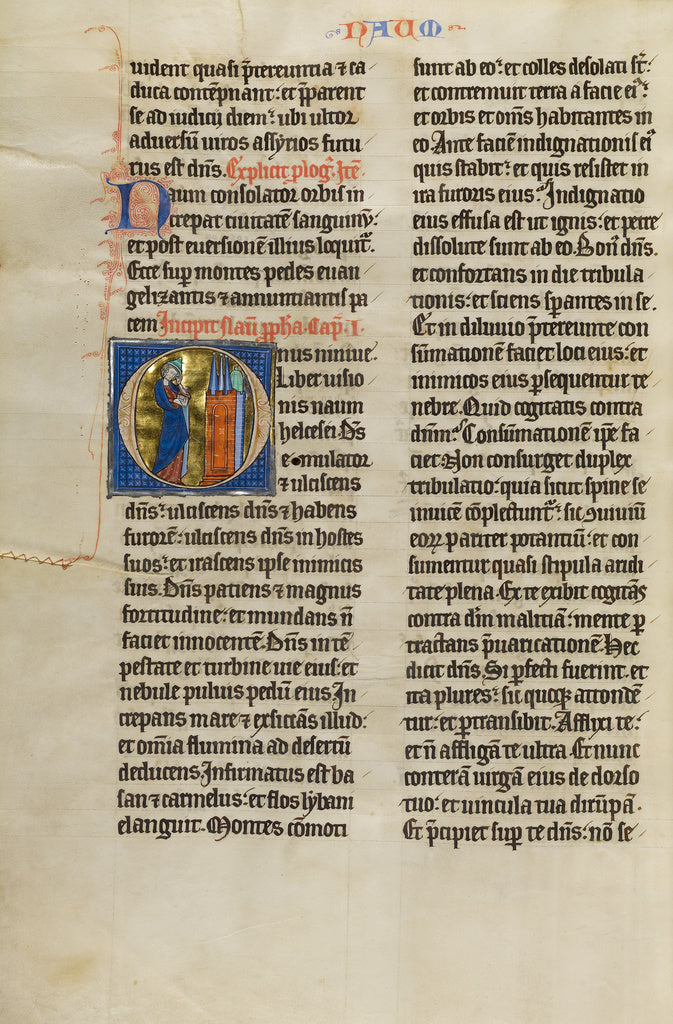 NAUM
uident quasi p̄tereuntia ⁊ ca
duca contēpnant: et p̄parent
se ad iudicii diem: ubi ultor
aduersū uiros assyrios futu
rus est dn̄s. Explicit plog. Itē.
Naum consolator orbis in
crepat ciuitatē sanguinū:
et post euersionē illius loquit᷑.
Ecce sup̄ montes pedes euan
gelizantis ⁊ annuntiantis pa
cem Incipit naū ꝓph̄a. Cap. I.
Onus niniue.
Liber uisio
nis naum
helcesei. Ds
emulator
⁊ ulciscens
dn̄s: ulciscens dn̄s ⁊ habens
furorē: ulciscens dn̄s in hostes
suos: et irascens ipse inimicis
suis. Dn̄s patiens ⁊ magnus
fortitudine: et mundans n̄
faciet innocentē. Dn̄s in tē
pestate et turbine uie eius: et
nebule puluis pedū eius. In
crepans mare ⁊ exsiccās illud:
et om̄ia flumina ad desertū
deducens. Infirmatus est ba
san ⁊ carmelus: et flos lybani
elanguit. Montes cōmoti
sunt ab eo: et colles desolati st̄:
et contremuit terra a facie eiꝰ:
et orbis et om̄s habitantes in
eo. Ante faciē indignationis eiꝰ
quis stabit: et quis resistet in
ira furoris eius: Indignatio
eius effusa est ut ignis: et petre
dissolute sunt ab eo. Bonꝰ dn̄s.
et confortans in die tribula
tionis: et sciens sꝑantes in se.
Et in diluuio p̄tereunte con
sūmationē faciet loci eius: et
inimicos eius ꝑsequentur te
nebre. Quid cogitatis contra
dn̄m: Consūmationē ip̄e fa
ciet. Non consurget duplex
tribulatio: quia sicut spine se
inuicē cōplectunt᷑: sic ꝯuiuiū
eoꝝ pariter potantiū: et con
sumentur quasi stipula aridi
tate plena. Ex te exibit cogitās
contra dn̄m malitiā: mente ꝑ
tractans p̄uaricationē. Hec
dicit dn̄s. Si ꝑfecti fuerint. et
ita plures: sic quoqꝫ attondē
tur: et ꝑtransibit. Afflixi te:
et n̄ affligā te ultra. Et nunc
conterā uirgā eius de dorso
tuo: et uincula tua dirūpā.
Et p̄cipiet sup̄ te dn̄s: nō se